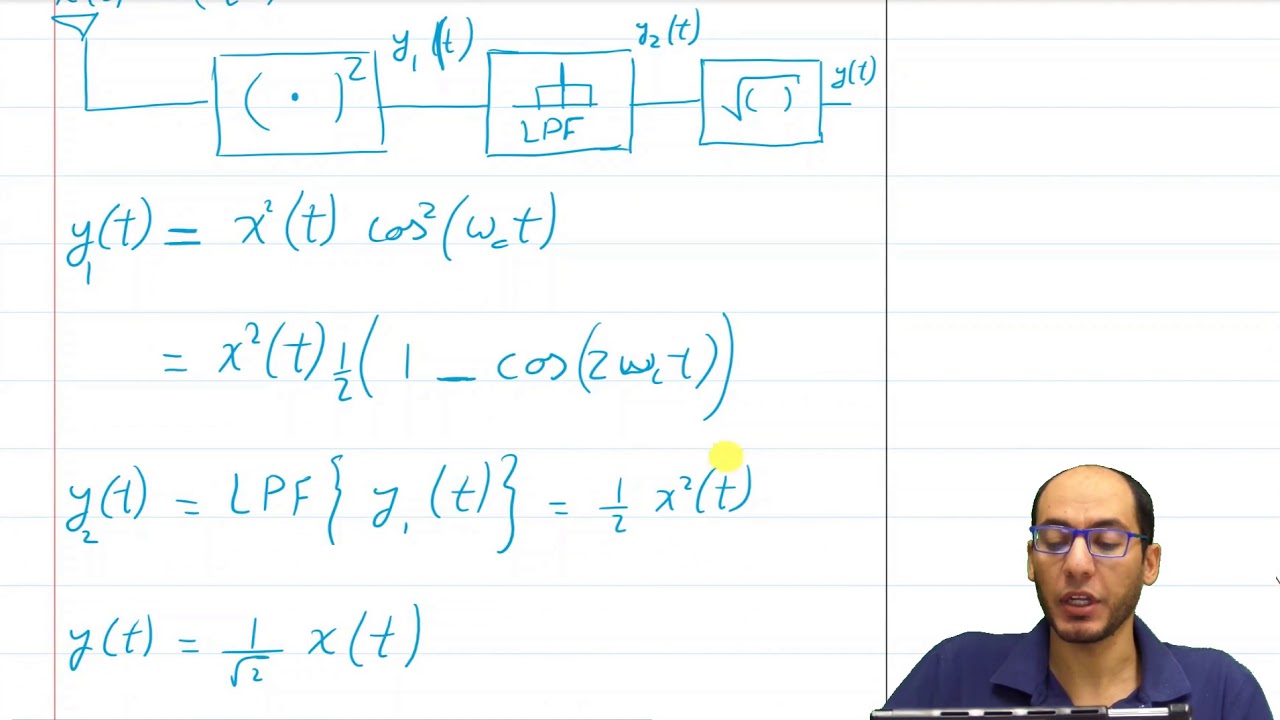 y₁(t) y₂(t)
( · )² LPF √( ) y(t)
y₁(t) = x²(t) cos²(ω_c t)
= x²(t) ½ ( 1 – cos(2ω_c t))
y₂(t) = LPF{ y₁(t)} = ½ x²(t)
y(t) = 1/√2 x(t)